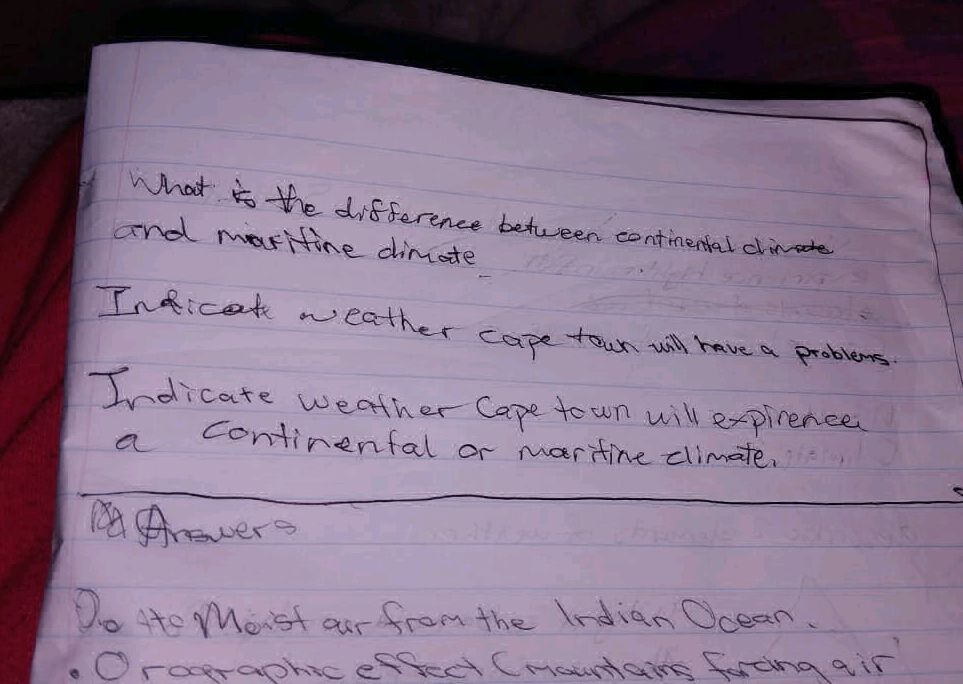 What is the difference between continental climate
and maritine climate
Indicate weather cape town will have a problems.
Indicate weather Cape town will expirence
a continental or maritine climate.
Answers
Moist air from the Indian Ocean.
• Orographic effect (mountains forcing air